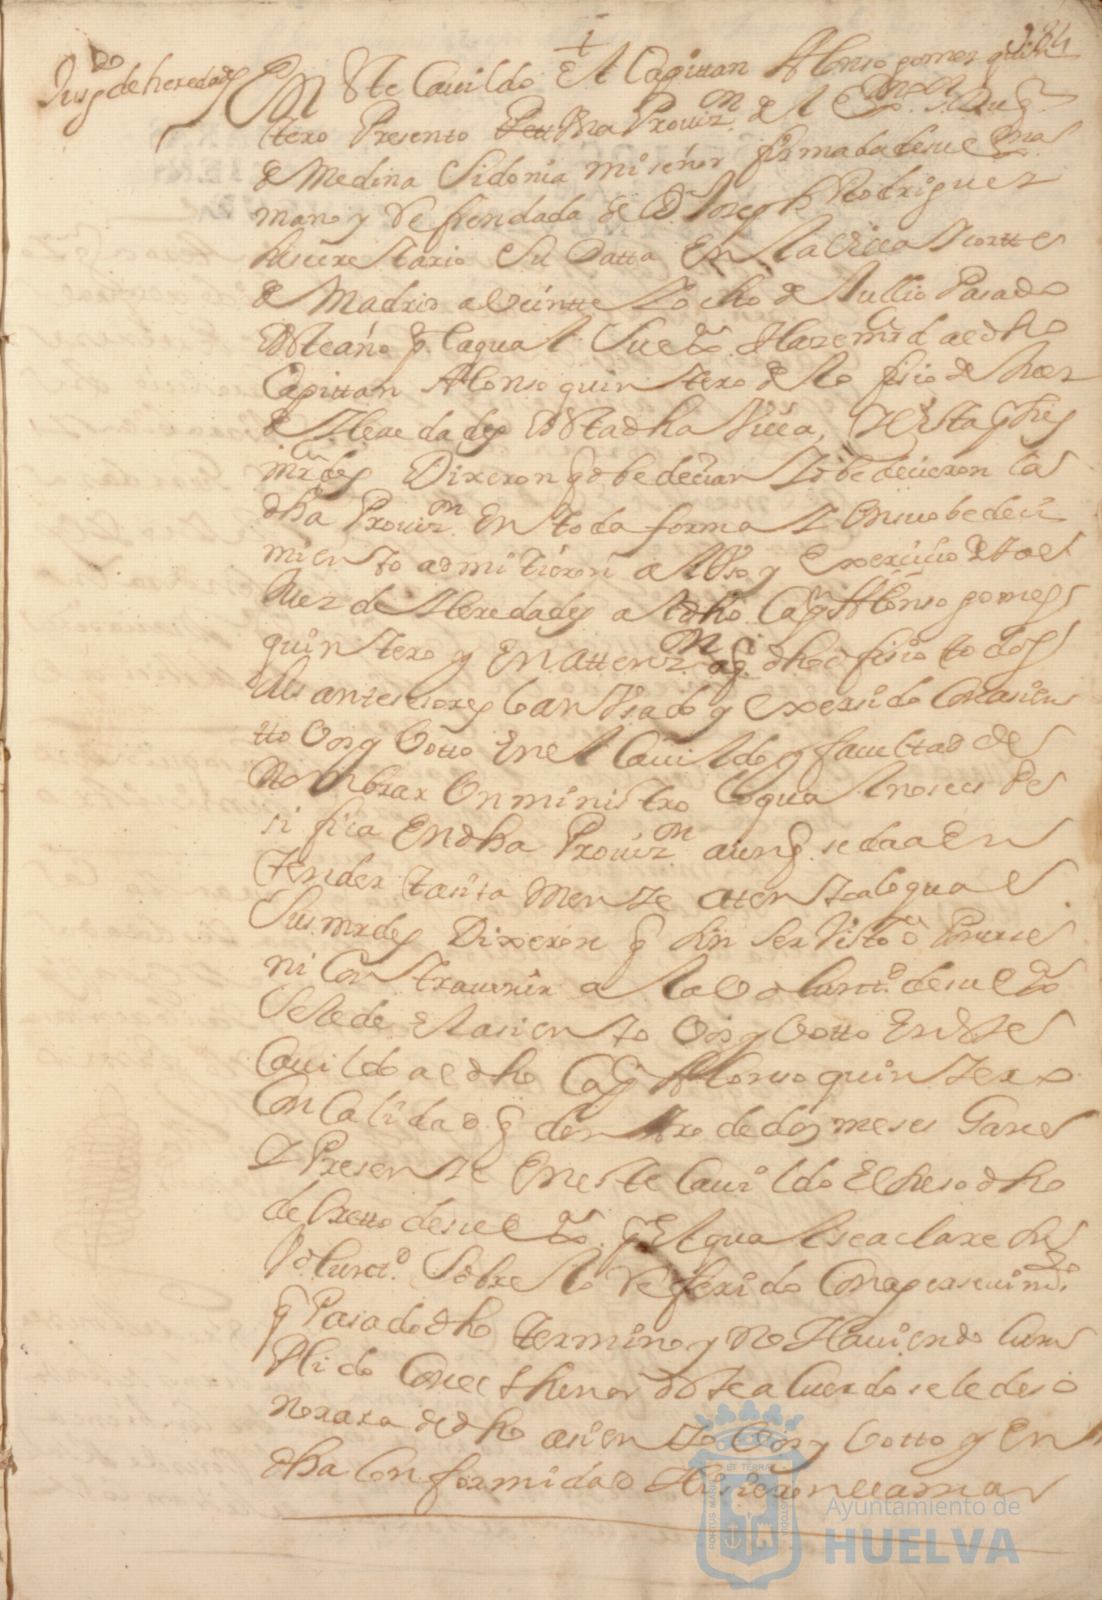 184
Juzgdo de heredades
En Este Cavildo El Capittan Alonso gomez quin
tero Presento Vna Provizn. del Exmo. Sr. Duqe.
de Medina Sidonia mi señor firmada de su Exma
mano y Refrendada de D. Joseph Rodriguez
su secrettario su Datta En la Villa y Corte
de Madrid a Veintte y ocho de Jullio Pasado
deste año por la qual Su exa. Haze mrd ael dho
Capittan Alonso quintero de lo fisio de Juez
de Heredades desta dha Villa, Y Vista por sus
mrdes Dixeron q obedecian y obedecieron la
dha Provizn. En toda forma y en su obedeci
miento admitieron al Vso y Exercicio de tal
Juez de Heredades al dho Capn Alonso gomes
quintero y En attenzn. aq. dho ofisio todos
sus antecesores lo an Vsado y exersido Con asien
tto Vos y Votto En el Cavildo y facultad de
Nombrar Vn ministro lo qual no se es pe
si fica En dha Provizn. aunq. se da a En
tender tasita Mente atento a lo qual
Sus mrdes Dixeron q sin ser Visto oponerse
ni Contravenir a la Voluntd. de su exa
Se le de el asiento Vos y Votto En este
Cavildo a el dho Capn Alonso quintero
Con Calidad q dentro de dos meses Ganes
y Presente En este Cavildo Expreso dho
decretto de su exa. por El qual se aclare su
Volunttd. Sobre lo Referido Con apersevimto.
q Pasado dho termino y no Haviendo Cum
Plido Con el thenor deste aCuerdo se le desi o
norara de dho asiento Vos y Votto y En
dha Conformidad Hisieron llamar
Ayuntamiento de
HUELVA